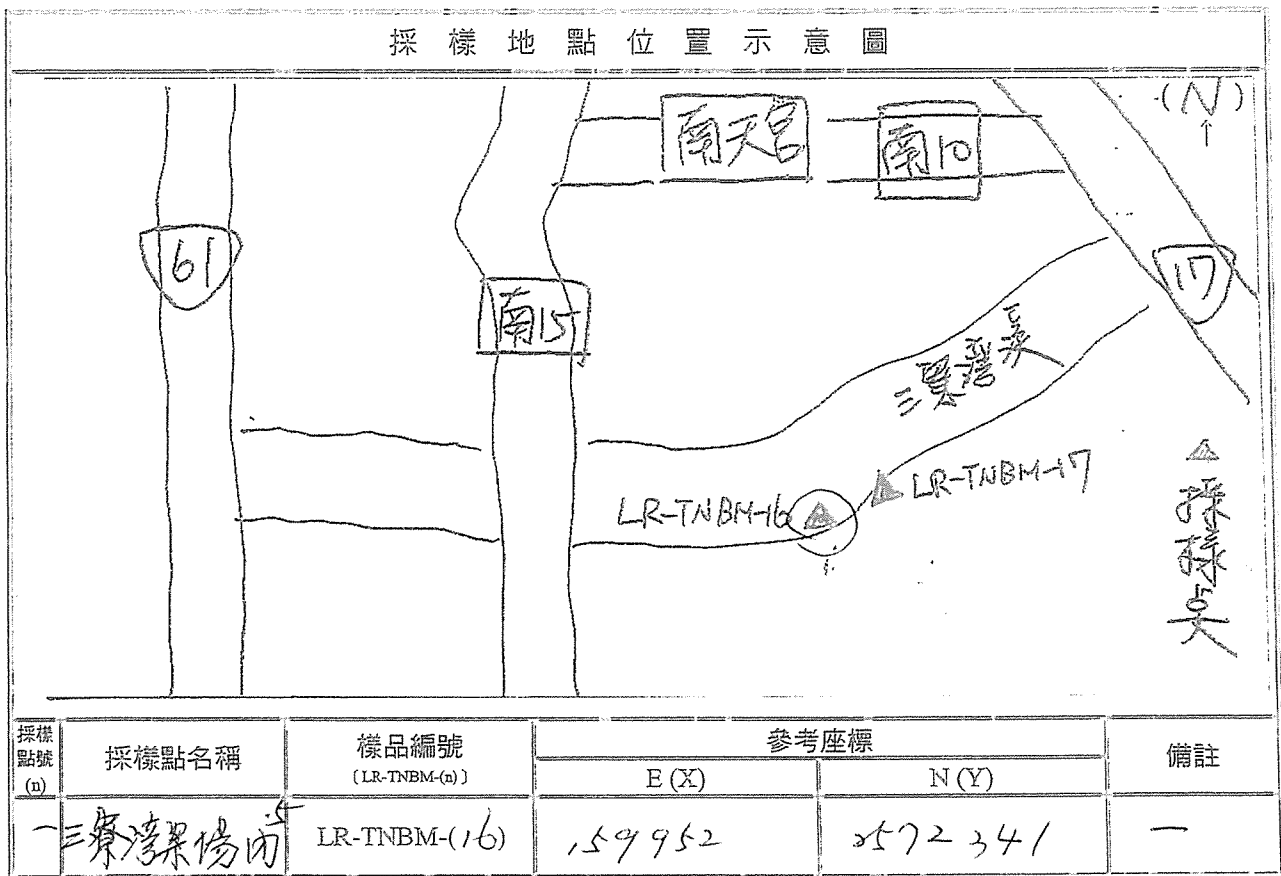 採樣地點位置示意圖
(N)
↑
南天宮
南10
61
17
南15
三寮灣溪
LR-TNBM-17
LR-TNBM-16
採樣点
採樣點號(n) 採樣點名稱 樣品編號 (LR-TNBM-(n)) 參考座標 E (X) N (Y) 備註
一 三寮灣 LR-TNBM-(16) 159952 2572341 —